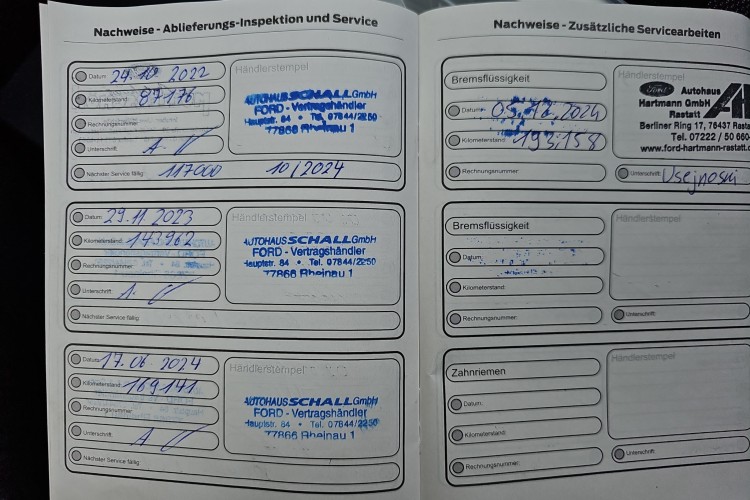 Nachweise - Ablieferungs-Inspektion und Service
Datum: 24.10 2022
Kilometerstand: 87176
Rechnungsnummer:
Unterschrift:
Nächster Service fällig: 117000 10/2024
Händlerstempel
AUTOHAUS SCHALL GmbH
FORD - Vertragshändler
Hauptstr. 84 • Tel. 07844/2250
77866 Rheinau 1
Datum: 29.11 2023
Kilometerstand: 143962
Rechnungsnummer:
Unterschrift:
Nächster Service fällig:
Händlerstempel
AUTOHAUS SCHALL GmbH
FORD - Vertragshändler
Hauptstr. 84 • Tel. 07844/2250
77866 Rheinau 1
Datum: 17.06 2024
Kilometerstand: 169141
Rechnungsnummer:
Unterschrift:
Nächster Service fällig:
Händlerstempel
AUTOHAUS SCHALL GmbH
FORD - Vertragshändler
Hauptstr. 84 • Tel. 07844/2250
77866 Rheinau 1
Nachweise - Zusätzliche Servicearbeiten
Bremsflüssigkeit
Datum: 05.12.2024
Kilometerstand: 193.158
Rechnungsnummer:
Händlerstempel
Ford Autohaus
Hartmann GmbH
Rastatt
Berliner Ring 17, 76437 Rasta
Tel. 07222 / 50 660
www.ford-hartmann-rastatt.
Unterschrift:
Bremsflüssigkeit
Datum:
Kilometerstand:
Rechnungsnummer:
Händlerstempel
Unterschrift:
Zahnriemen
Datum:
Kilometerstand:
Rechnungsnummer:
Händlerstempel
Unterschrift: